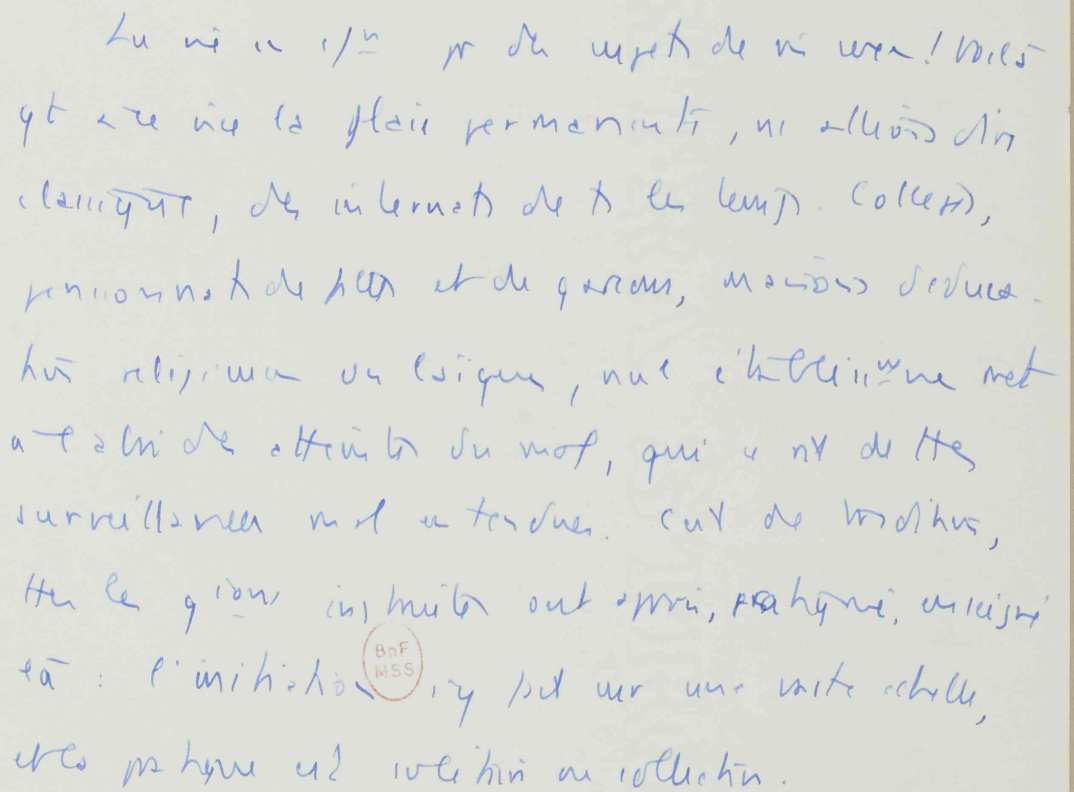 pr des
la plaie permanente, ns allions dire
classique, des internats de ts les temps. Collèges,
pensionnats de filles et de garçons, maisons d'éduca-
tion religieuses ou laïques, nul établissmt ne met
à l'abri des atteintes du mal, qui se rit de ttes
surveillances mal entendues. C'est de tradition,
ttes les gions instruites ont appris, pratiqué, enseigné
là : l'initiation s'y fait sur une vaste échelle,
et la pratique est solitaire ou collective.
BnF
MSS